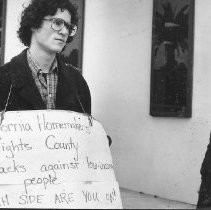 ornia Homemaker
ights County
acks against low-income
people.
H SIDE ARE YOU ON?